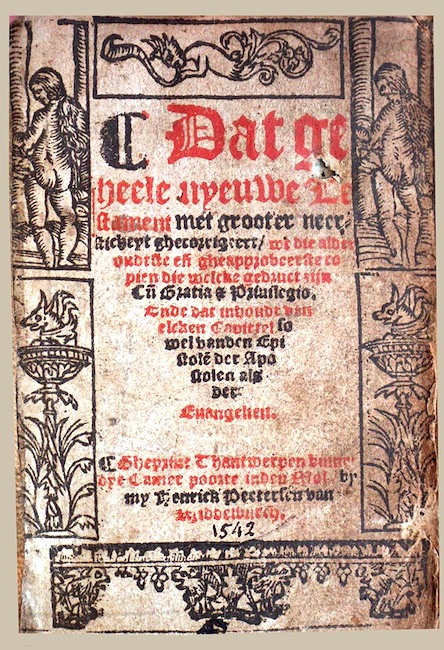 C Dat ge
heele nyeuwe Te
stament met grooter neer/
sticheyt ghecorrigeert/ wt die alder
oudtste eñ gheapprobeerste co
pien die welcke gedruct zijn
Cũ Gratia & Priuilegio.
Ende dat inhoudt van
elcken Capittel so
wel vanden Epi
stolē der Apo
stolen als
der
Euangelien.
C Gheprint Thantwerpen binnē
dye Camer poorte inden Mol/ by
my Henrick Peetersen van
Middelburch.
1542